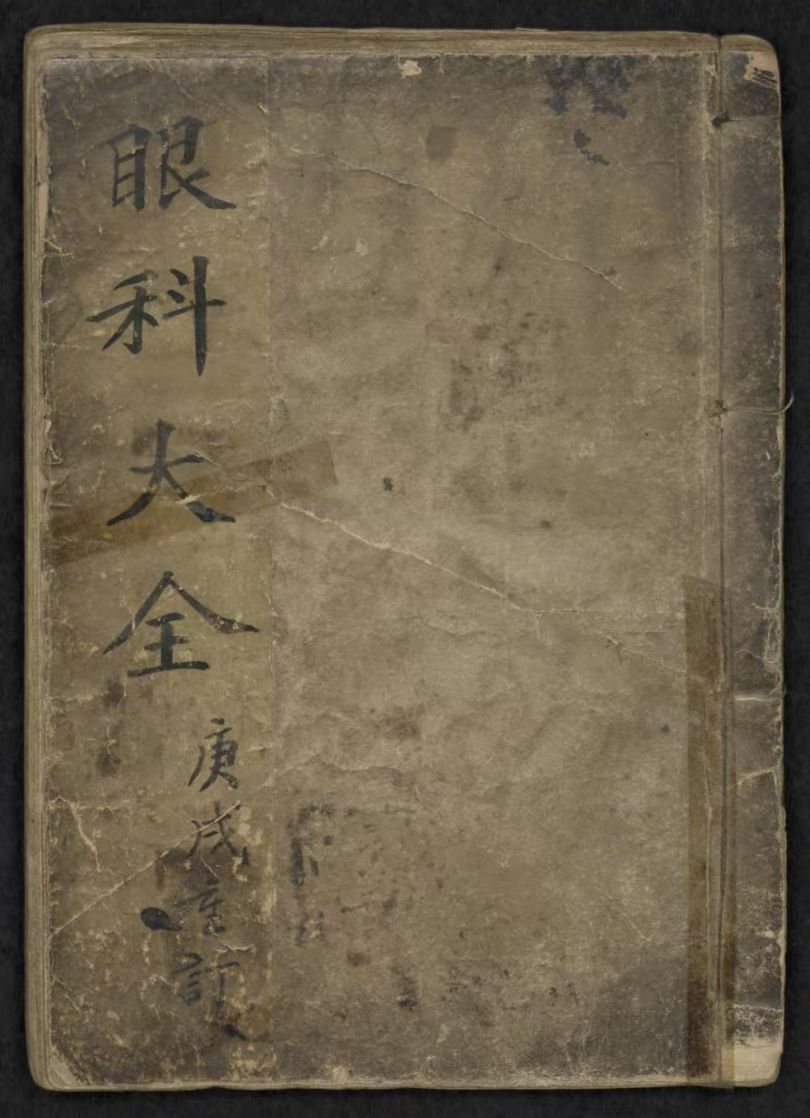 眼科大全
庚戌重訂